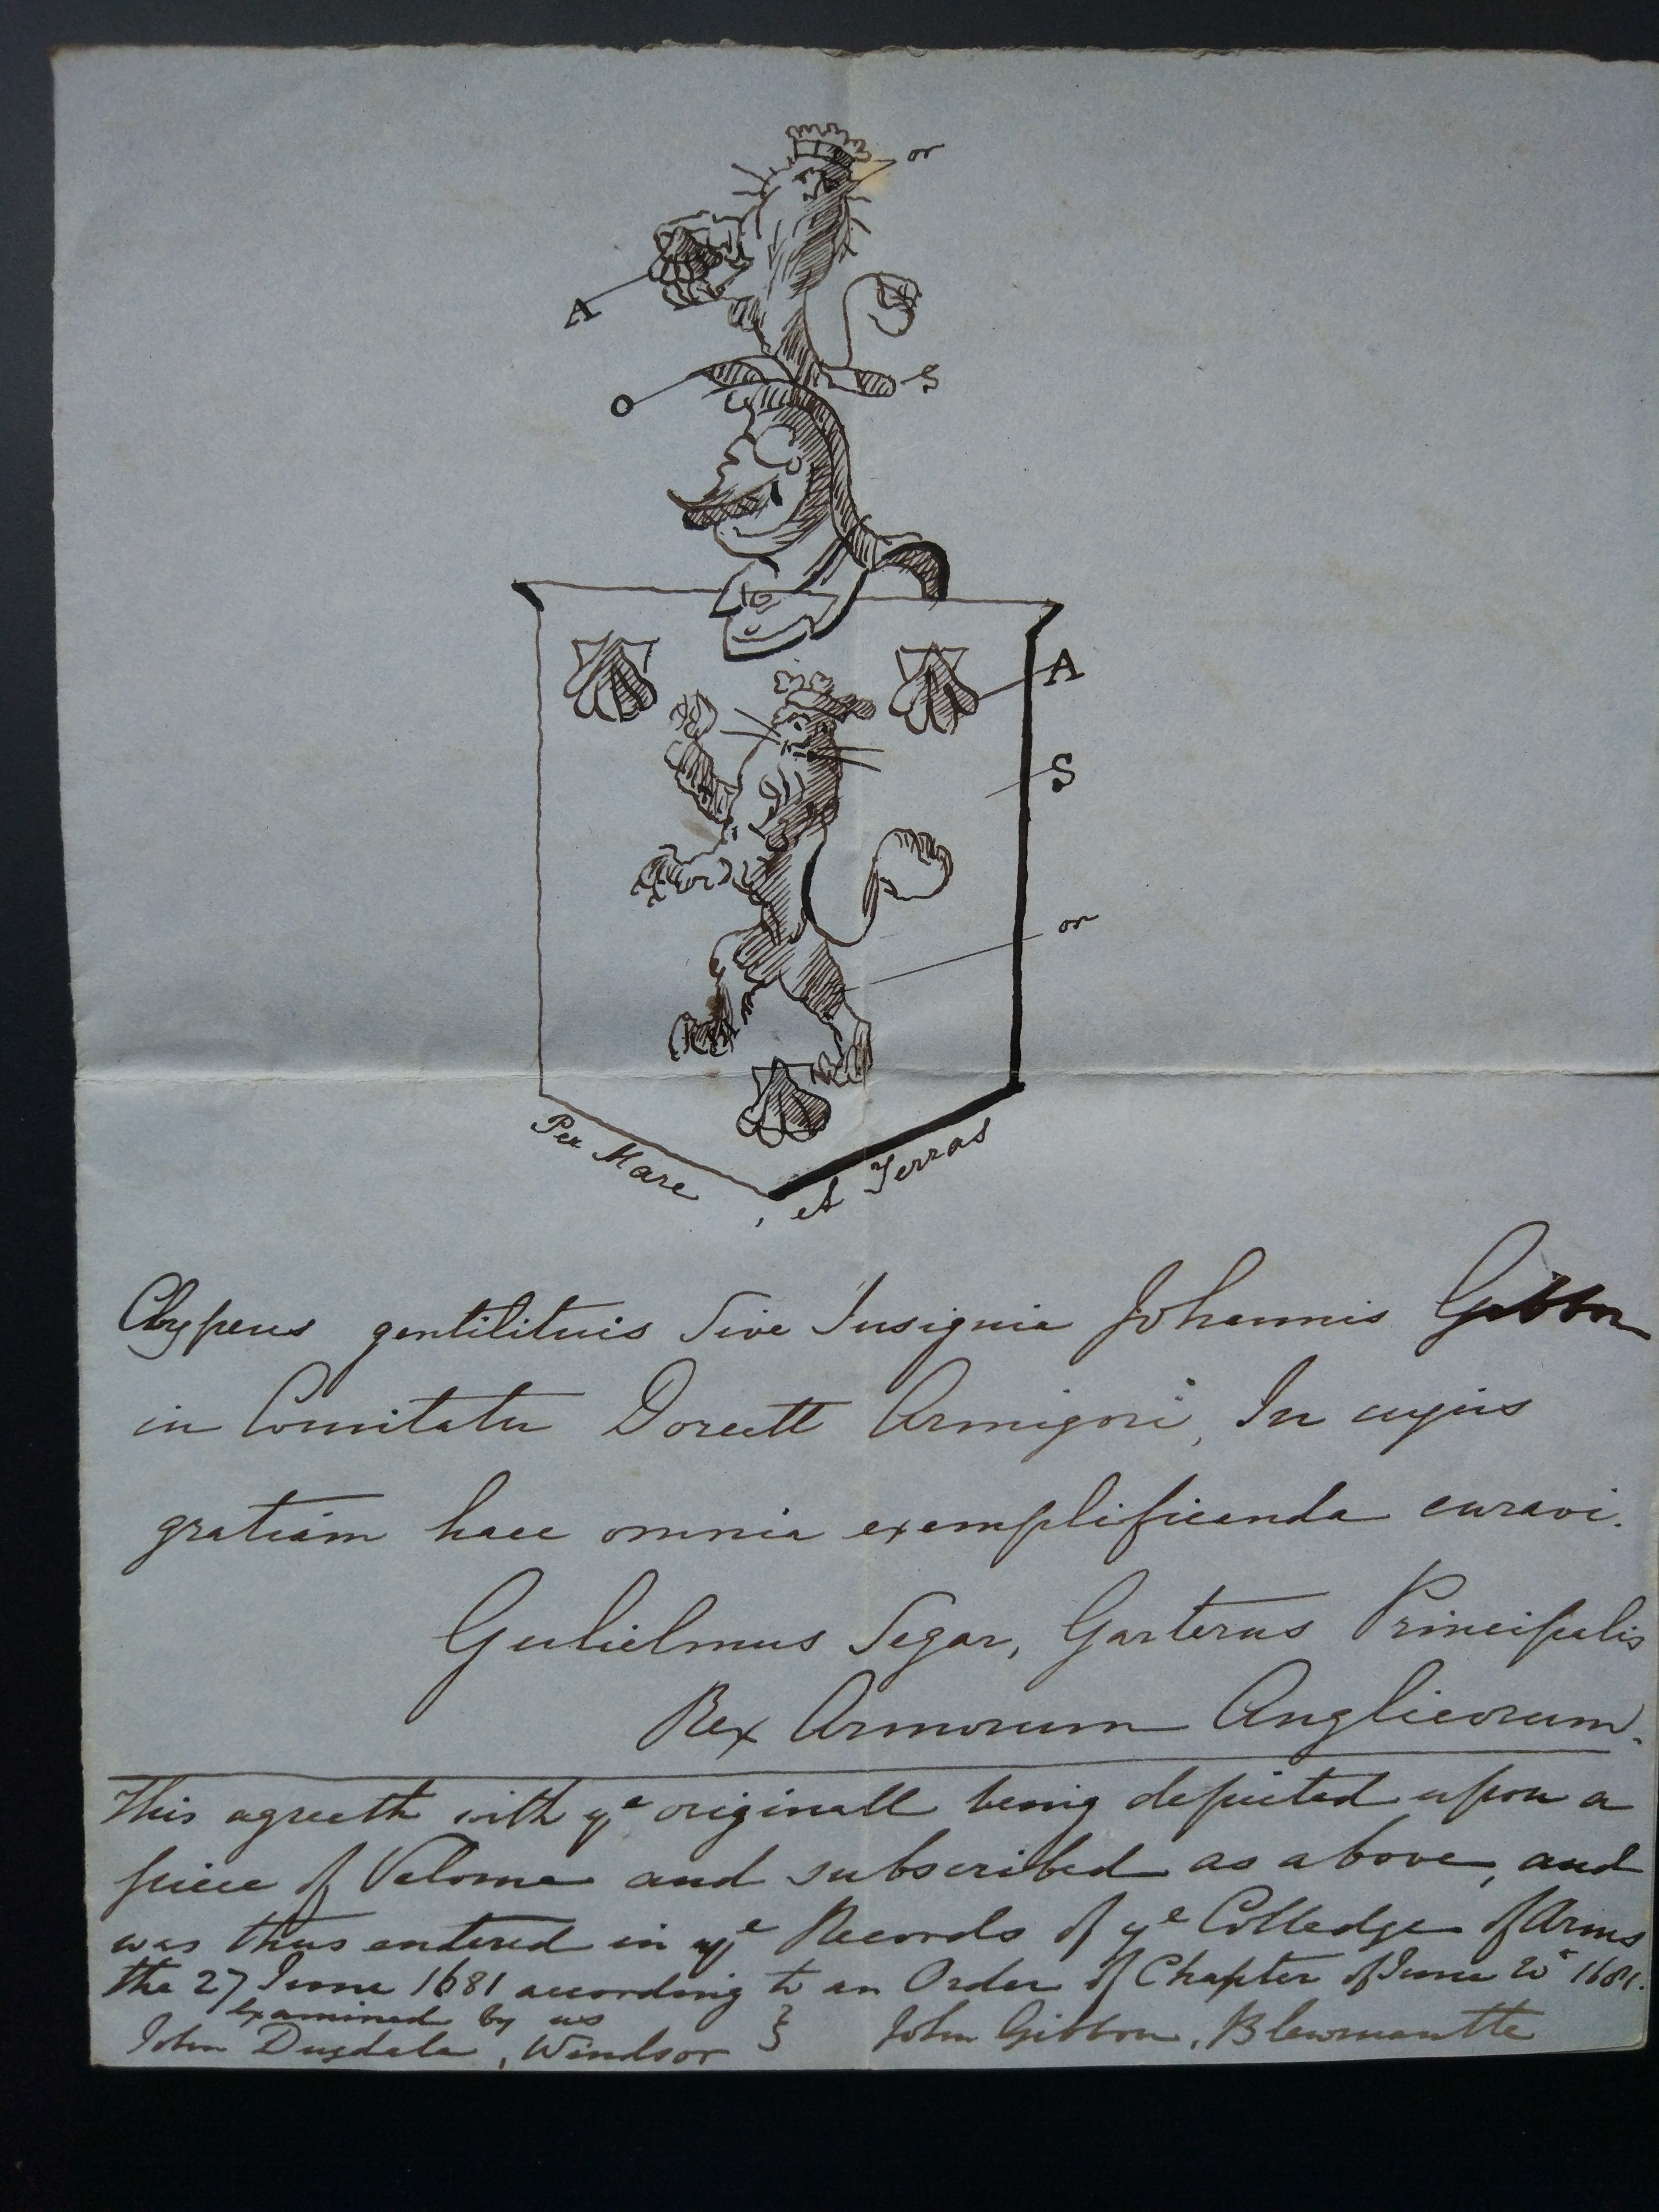 or
A
S
O
A
S
or
Per Mare, et Terras
Clypeus gentilituis Sive Insignia Johannis Gibbon
in Comitatu Dorcett Armigori, In cujus
gratiam haec omnia exemplificanda curavi.
Gulielmus Segar, Garterus Principalis
Rex Armorum Anglicorum.
This agreeth with yᵉ originall being depicted upon a
piece of Velome and subscribed as above, and
was thus entered in yᵉ Records of yᵉ Colledge of Arms
the 27 June 1681 according to an Order of Chapter of June 1681.
examined by us }
John Dugdale, Windsor John Gibbon, Blewmantle